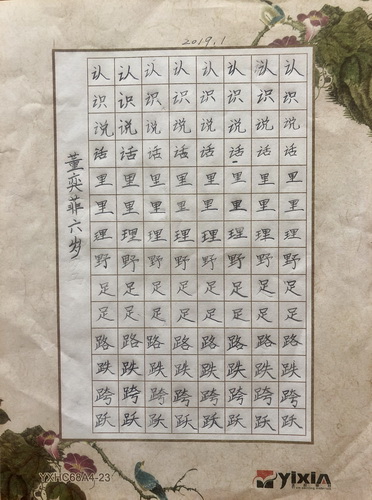 2019.1
认认认认认认认认
识识识识识识识识
说说说说说说说说
话话话话话话话话
里里里里里里里里
里里里里里里里里
理理理理理理理理
野野野野野野野野
足足足足足足足足
足足足足足足足足
路路路路路路路路
跌跌跌跌跌跌跌跌
跨跨跨跨跨跨跨跨
跃跃跃跃跃跃跃跃
董奕菲六岁
YXHC68A4-23
YiXiA